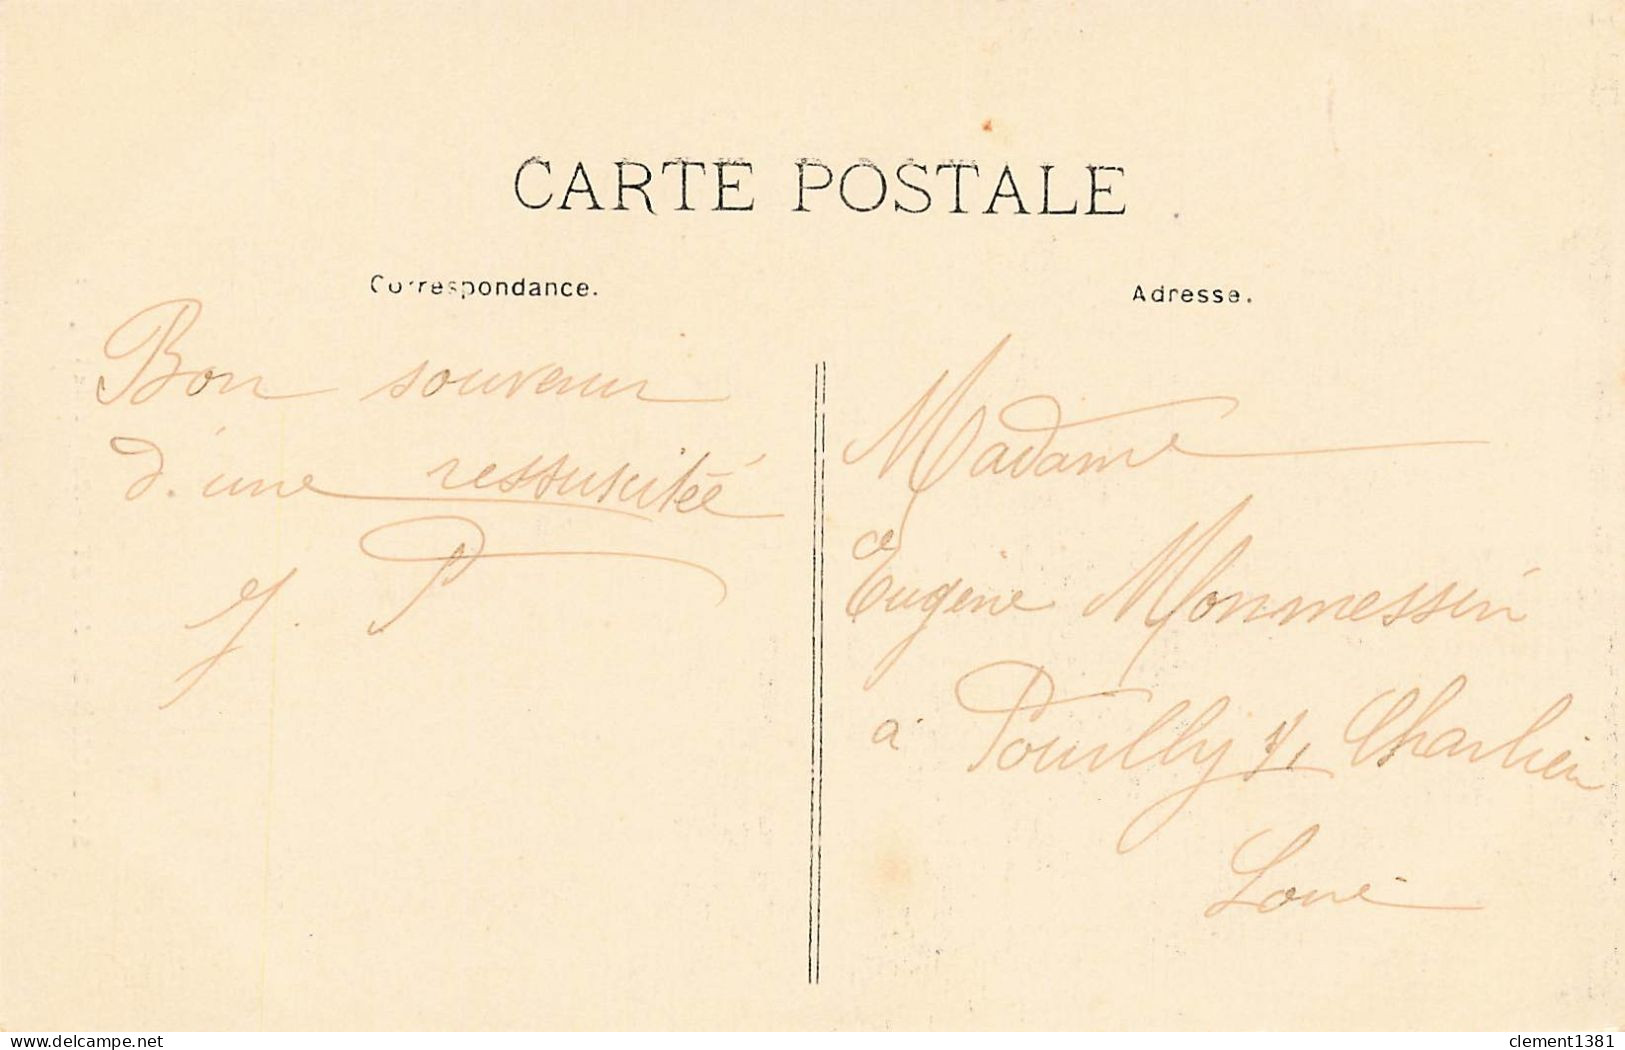 CARTE POSTALE
Correspondance.
Bon souvenir
d'une ressuscitée
J. P
Adresse.
Madame
Eugène Monmessin
à Pouilly s/ Charlieu
Loire
delcampe.net
clement1381